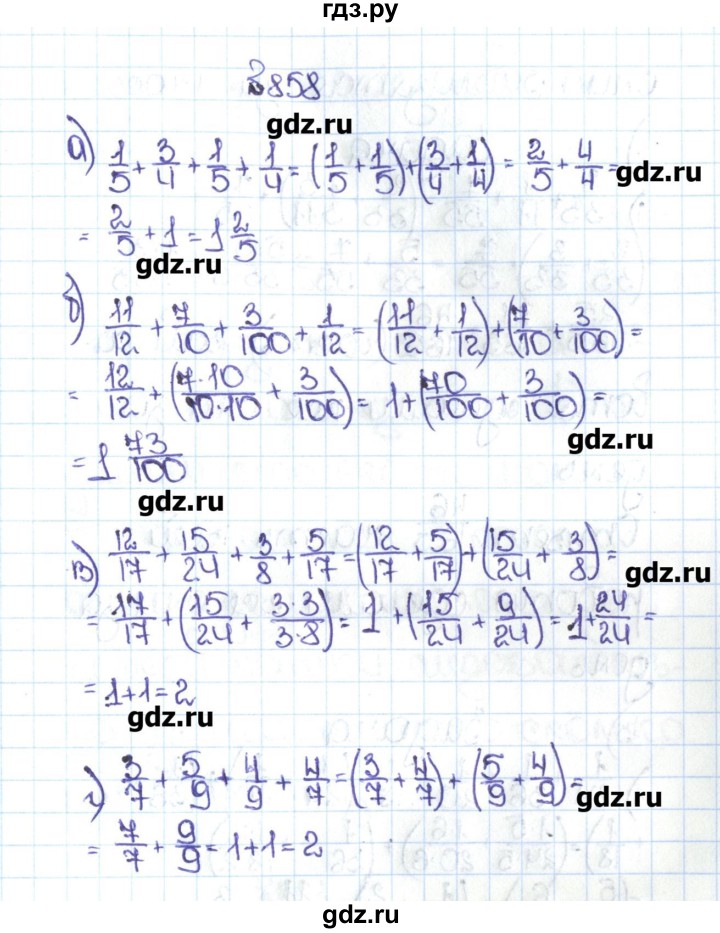 гдз.ру
№858
gdz.ru
а) 1/5 + 3/4 + 1/5 + 1/4 = (1/5 + 1/5) + (3/4 + 1/4) = 2/5 + 4/4 =
gdz.ru
= 2/5 + 1 = 1 2/5
gdz.ru
б) 11/12 + 7/10 + 3/100 + 1/12 = (11/12 + 1/12) + (7/10 + 3/100) =
= 12/12 + (7·10/10·10 + 3/100) = 1 + (70/100 + 3/100) =
gdz.ru
= 1 73/100
gdz.ru
в) 12/17 + 15/24 + 3/8 + 5/17 = (12/17 + 5/17) + (15/24 + 3/8) =
gdz.ru
= 17/17 + (15/24 + 3·3/3·8) = 1 + (15/24 + 9/24) = 1 + 24/24 =
= 1 + 1 = 2
gdz.ru
г) 3/7 + 5/9 + 4/9 + 4/7 = (3/7 + 4/7) + (5/9 + 4/9) =
gdz.ru
= 7/7 + 9/9 = 1 + 1 = 2
gdz.ru